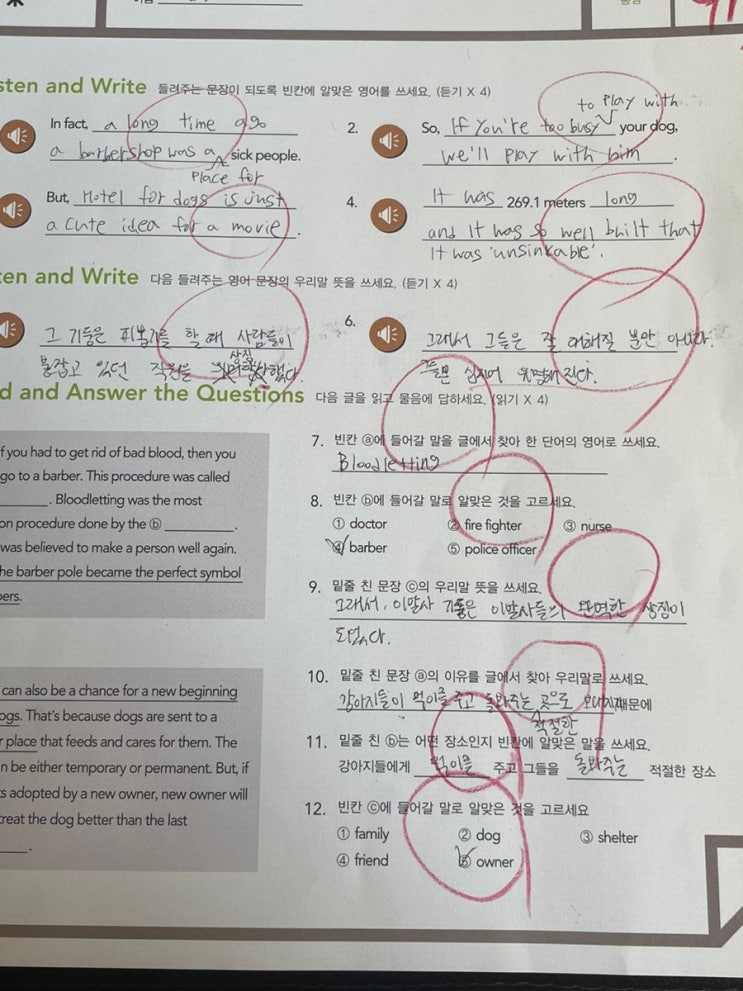 sten and Write 들려주는 문장이 되도록 빈칸에 알맞은 영어를 쓰세요. (듣기 X 4)
In fact, a long time ago
a barbershop was a sick people.
place for
to play with
2. So, If you're too busy your dog,
we'll play with him.
But, Hotel for dogs is just
a cute idea for a movie.
4. It was 269.1 meters long
and It was so well built that
It was 'unsinkable'.
en and Write 다음 들려주는 영어 문장의 우리말 뜻을 쓰세요. (듣기 X 4)
그 기둥은 피뽑기를 할 때 사람들이
붙잡고 있던 막대를 상징 했다.
6. 그래서 그들은 잘 대해질 뿐만 아니라.
그들은 심지어 유명해진다.
d and Answer the Questions 다음 글을 읽고 물음에 답하세요. (읽기 X 4)
f you had to get rid of bad blood, then you
go to a barber. This procedure was called
______. Bloodletting was the most
on procedure done by the ⓑ ________.
was believed to make a person well again.
he barber pole became the perfect symbol
ers.
7. 빈칸 ⓐ에 들어갈 말을 글에서 찾아 한 단어의 영어로 쓰세요.
Bloodletting
8. 빈칸 ⓑ에 들어갈 말로 알맞은 것을 고르세요.
① doctor ② fire fighter ③ nurse
④ barber ⑤ police officer
9. 밑줄 친 문장 ⓒ의 우리말 뜻을 쓰세요.
그래서, 이발사 기둥은 이발사들의 완벽한 상징이
되었다.
can also be a chance for a new beginning
ogs. That's because dogs are sent to a
r place that feeds and cares for them. The
n be either temporary or permanent. But, if
s adopted by a new owner, new owner will
treat the dog better than the last
____.
10. 밑줄 친 문장 ⓐ의 이유를 글에서 찾아 우리말로 쓰세요.
강아지들이 먹이를 주고 돌봐주는 곳으로 때문에
적절한
11. 밑줄 친 ⓑ는 어떤 장소인지 빈칸에 알맞은 말을 쓰세요.
강아지들에게 먹이를 주고 그들을 돌봐주는 적절한 장소
12. 빈칸 ⓒ에 들어갈 말로 알맞은 것을 고르세요
① family ② dog ③ shelter
④ friend ⑤ owner